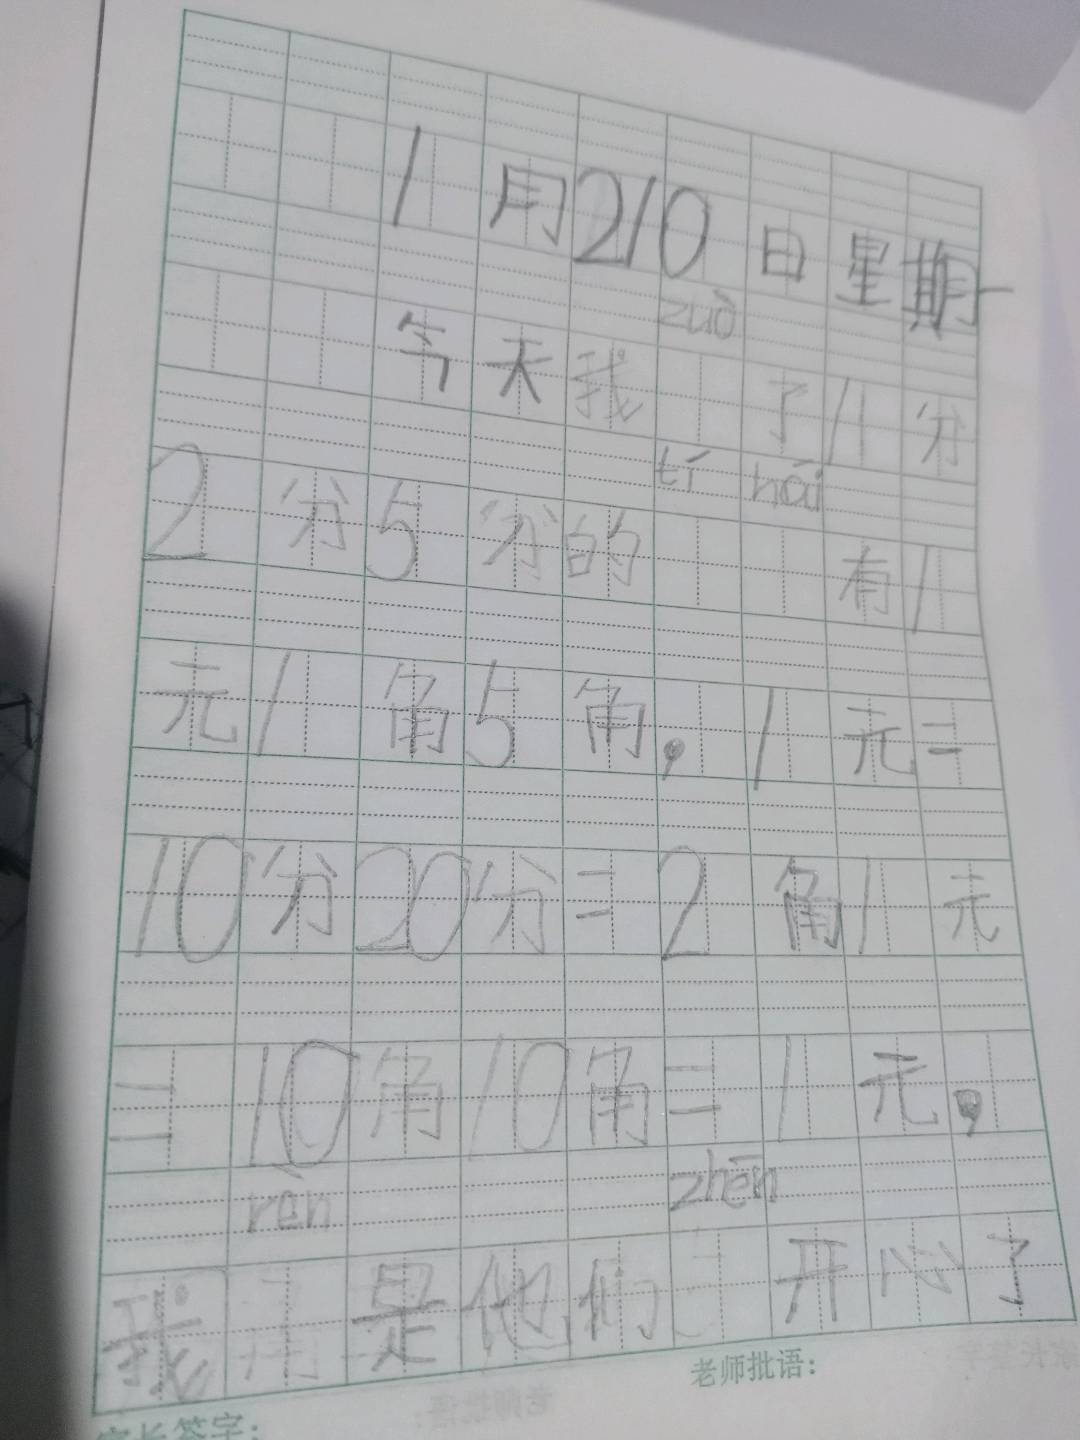 1月210日星期一
zuò
今天我 了1分
tí hái
2分5分的 有1
元1角5角，1元=
10分20分=2角1元
=10角10角=1元，
rèn zhēn
我 是他们 开心了
老师批语：
家长签字：